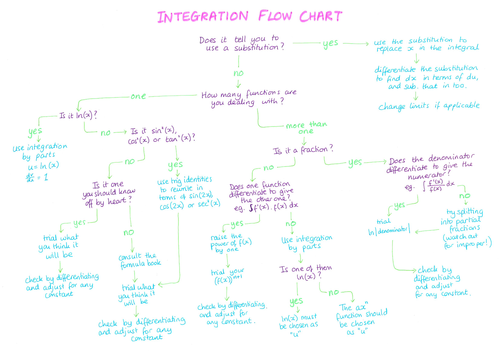 INTEGRATION FLOW CHART
Does it tell you to
use a substitution?
yes
use the substitution to
replace x in the integral
differentiate the substitution
to find dx in terms of du,
and sub. that in too.
change limits if applicable
no
How many functions are
you dealing with?
one
Is it ln(x)?
yes
use integration
by parts
u = ln(x)
no
Is it sin²(x),
cos²(x) or tan²(x)?
yes
use trig identities
to rewrite in
terms of sin(2x),
cos(2x) or sec²(x)
no
Is it one
you should know
off by heart?
yes
trial what
you think it
will be
check by differentiating
and adjust for any
constant
no
consult the
formula book
trial what
you think it
will be
check by differentiating
and adjust for any
constant.
more than
one
Is it a fraction?
no
Does one function
differentiate to give
the other one?
eg. ∫f'(x).f(x) dx
yes
raise the
power of f(x)
by one
trial your
(f(x))ⁿ⁺¹
check by differentiating
and adjust for any
constant.
no
Use integration
by parts
Is one of them
ln(x)?
yes
ln(x) must
be chosen as
"u"
no
The axⁿ
function should
be chosen
as "u"
yes
Does the denominator
differentiate to give the
numerator?
eg. ∫ f'(x)/f(x) dx
yes
trial
ln|denominator|
check by
differentiating
and adjust
for any
constant.
no
try splitting
into partial
fractions
(watch out
for improper!)